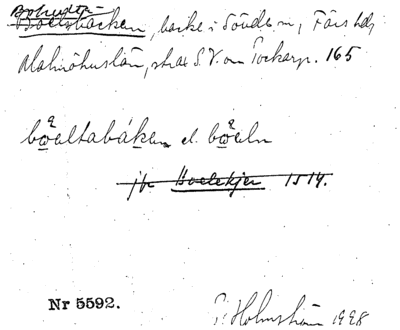 Boeltsbacken, backe i Sövde sn, Färs hd,
Malmöhuslän, strax S.V. om Tockarp. 165
böaeltabáken el. böaeln
jfr Boelekjer 1514.
Nr 5592.
P. Holmström 1928